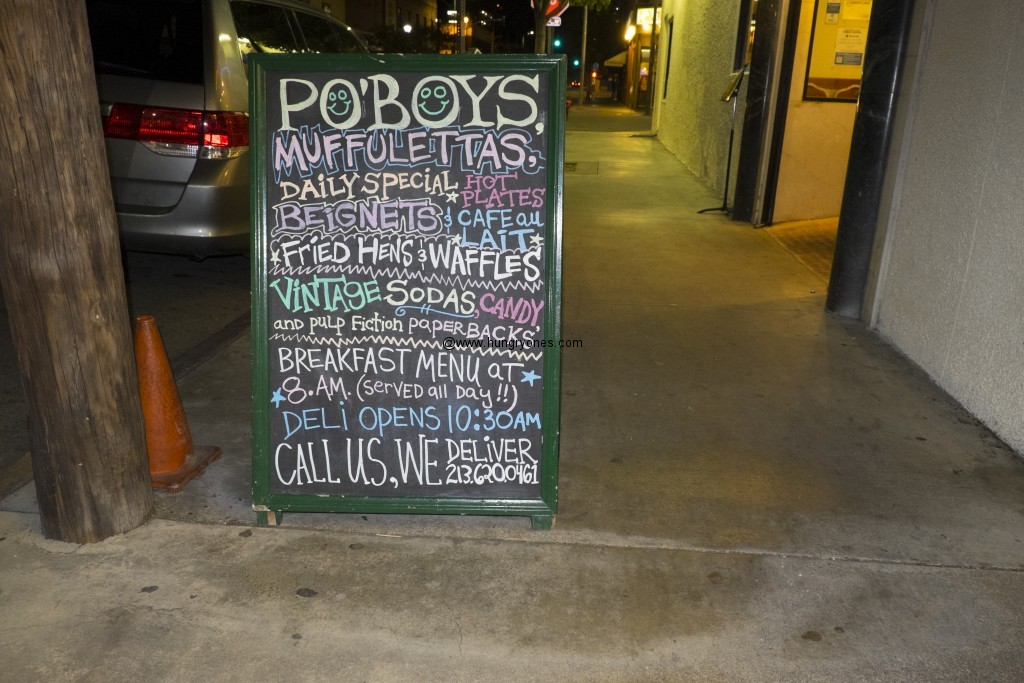 PO'BOYS,
MUFFULETTAS,
DAILY SPECIAL HOT PLATES
BEIGNETS & CAFE au LAIT
FRIED HENS & WAFFLES
VINTAGE SODAS, CANDY
and PULP FICTION PAPERBACKS'
@www.hungryones.com
BREAKFAST MENU AT
8.AM. (SERVED all DAY!!)
DELI OPENS 10:30AM
CALL US, WE DELIVER
213.620.0461